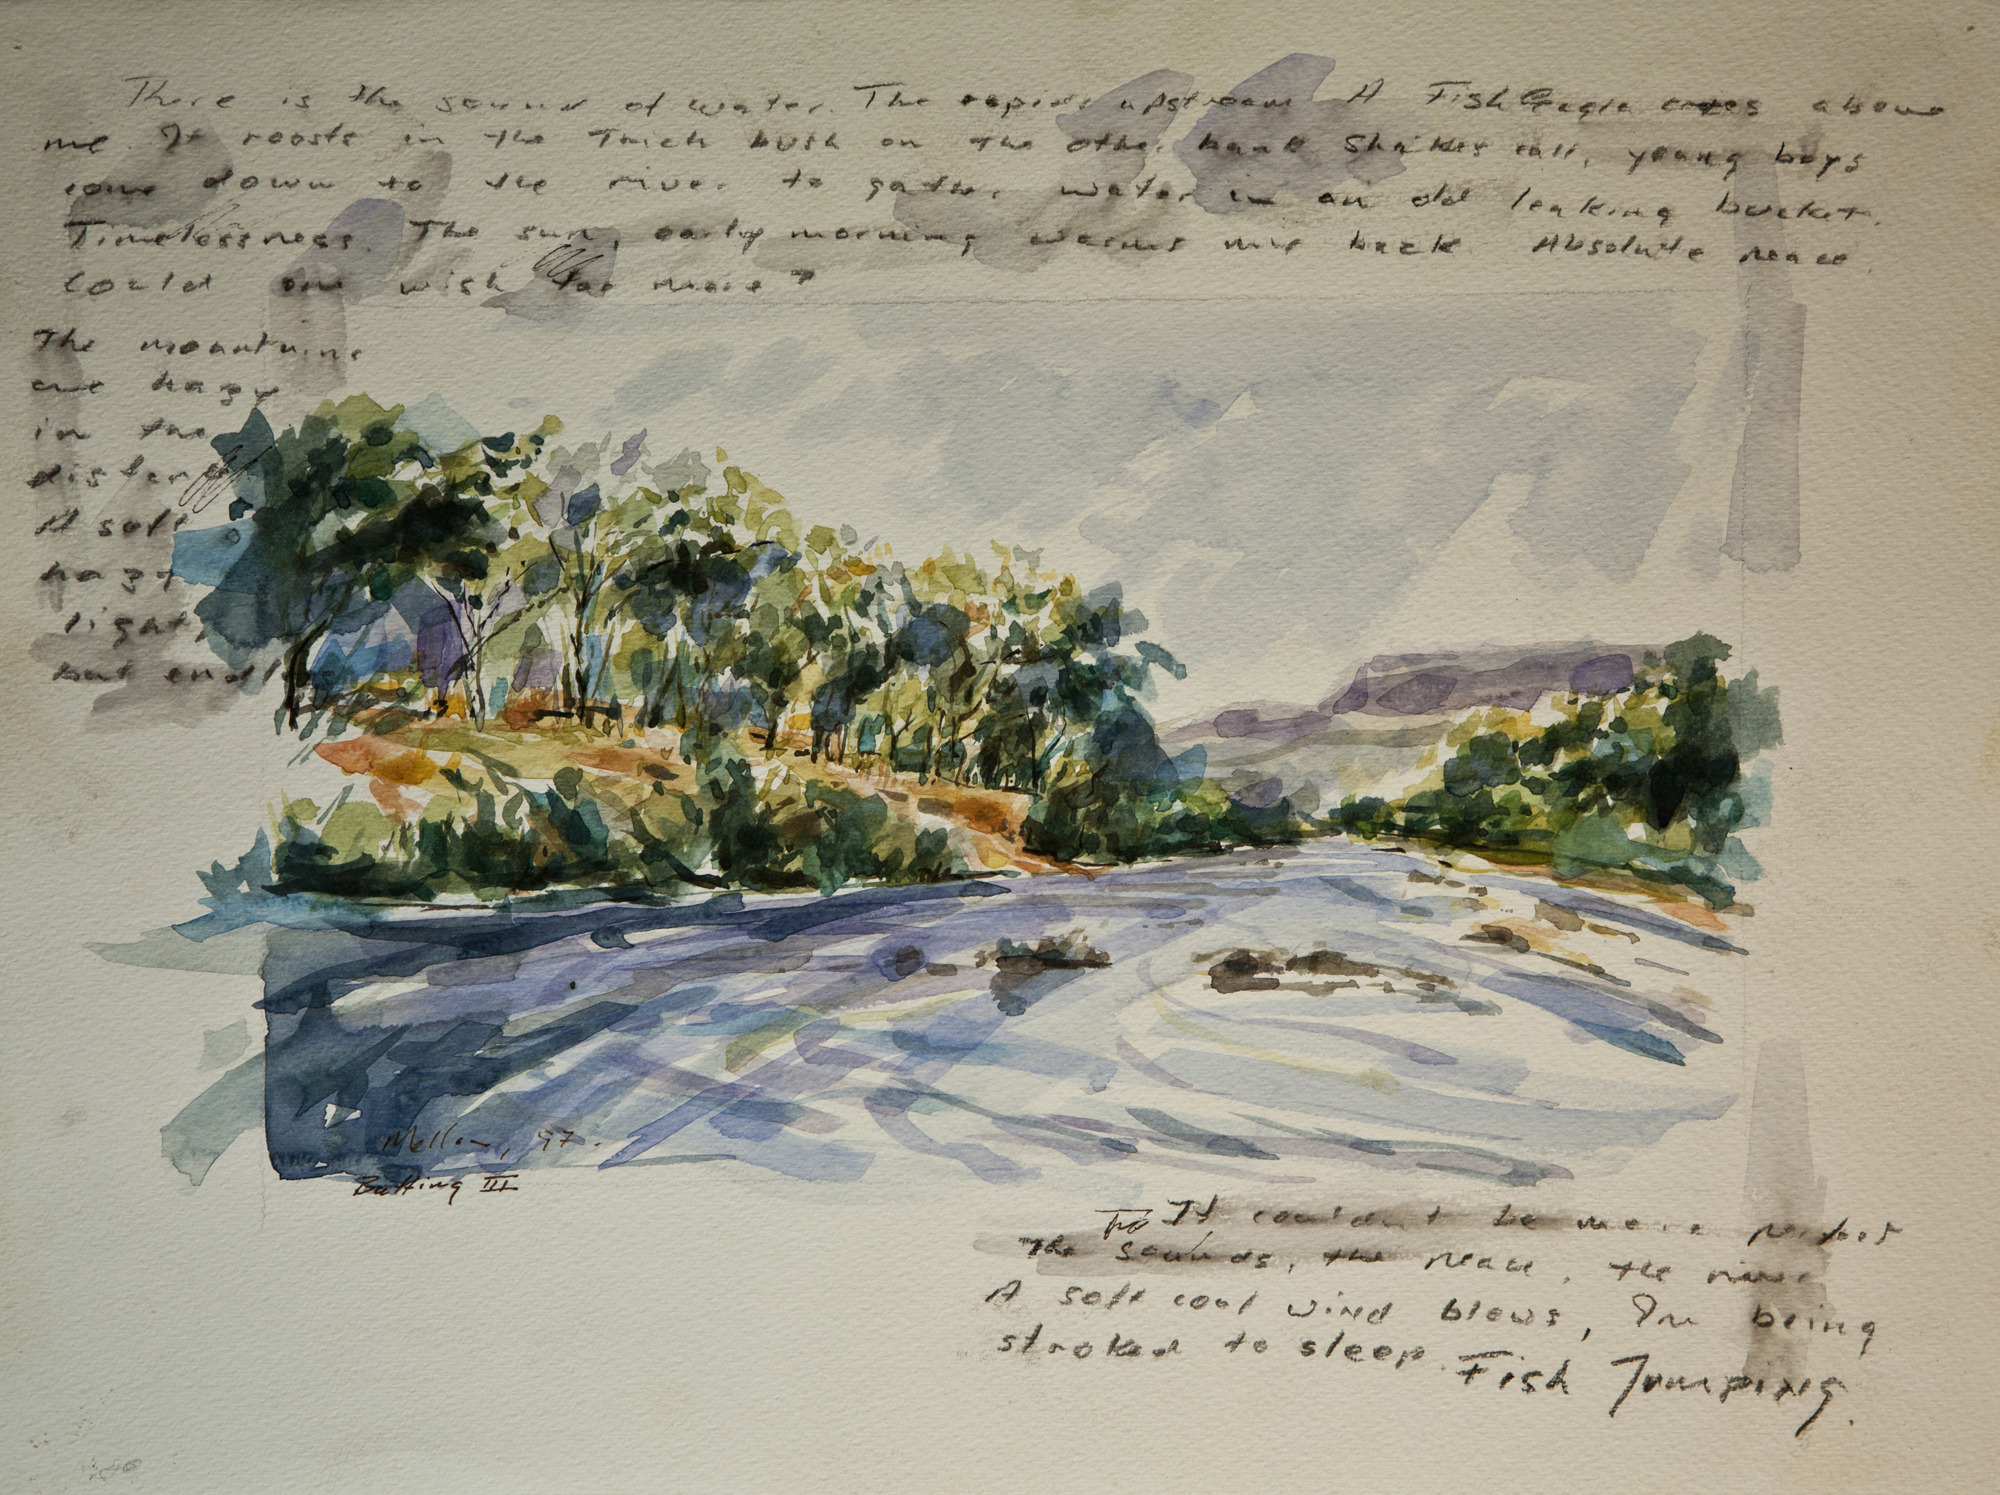 There is the sound of water. The rapids upstream A Fish Eagle cries above
me. It roosts in the Thick bush on the other bank Shrikes call, young boys
come down to the river to gather water in an old leaking bucket.
Timelessness. The sun, early morning warms my back. Absolute peace.
Could one wish for more?
The mountains
are hazy
in the
A soft
hazy
light,
but
Mellon, 97.
III
It couldn't be more perfect
The sounds, the peace, the river
A soft cool wind blows, I'm being
stroked to sleep. Fish Jumping.